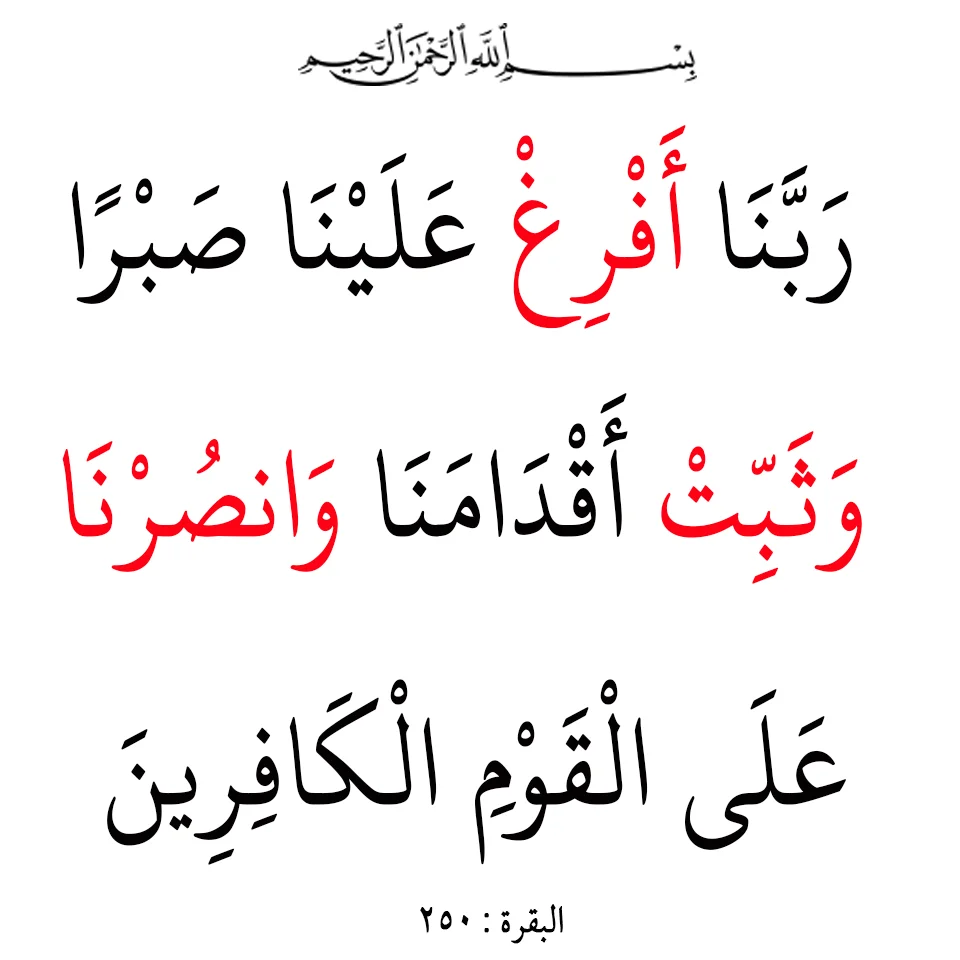 بِسْمِ ٱللَّهِ ٱلرَّحْمَٰنِ ٱلرَّحِيمِ
رَبَّنَا أَفْرِغْ عَلَيْنَا صَبْرًا
وَثَبِّتْ أَقْدَامَنَا وَانصُرْنَا
عَلَى الْقَوْمِ الْكَافِرِينَ
البقرة : ٢٥٠